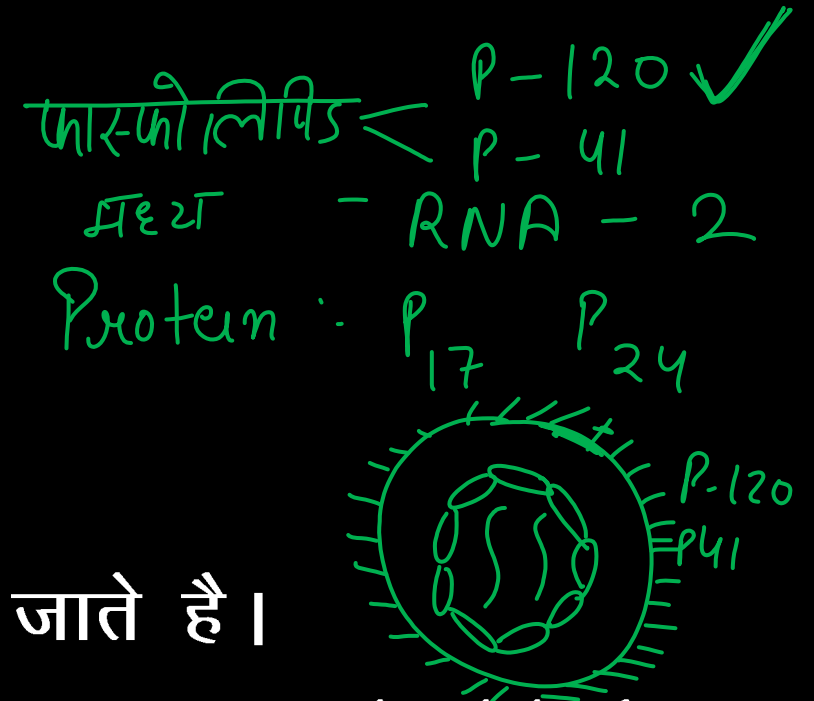 P-120
फास्फोलिपिड
P-41
मध्य - RNA - 2
Protein :- P17 P24
P-120
P41
जाते है।